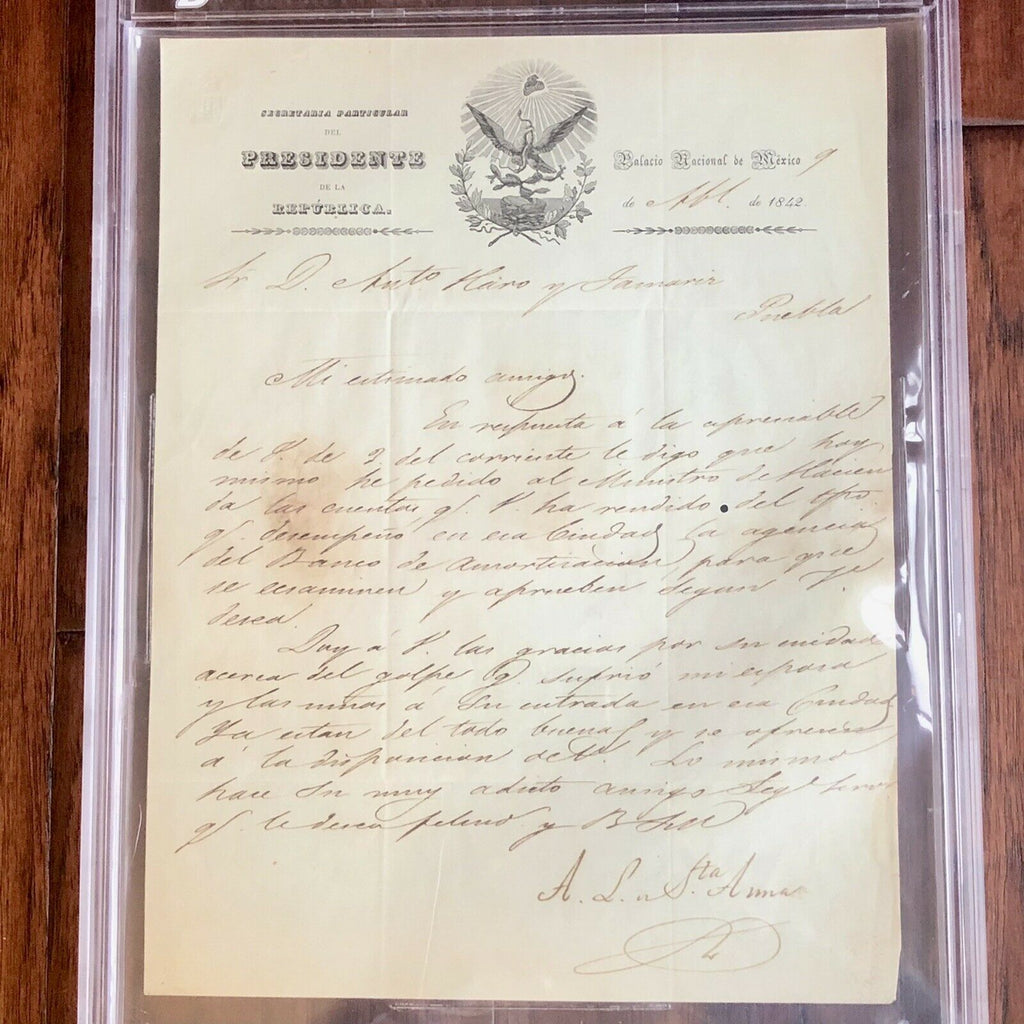 SECRETARIA PARTICULAR
DEL
PRESIDENTE
DE LA
REPÚBLICA.
Palacio Nacional de México 9
de Abl. de 1842
Sr. D. Anto Haro y Tamariz
Puebla
Mi estimado amigo.
En respuesta á la apreciable
de V. de 2 del corriente le digo que hoy
mismo he pedido al Ministro de Hacien
da las cuentas q. V. ha rendido del tpo.
q. desempeñó en esa Ciudad la agencia
del Banco de Amortizacion para que
se ecsaminen y aprueben segun V.
desea.
Doy á V. las gracias por su cuidado
acerca del golpe q. sufrió mi esposa
y las niñas á su entrada en esa Ciudad
Ya estan del todo buenas y se ofrecen
á la disposicion de V. Lo mismo
hace su muy adicto amigo SegO Servr
q. le desea felicid y B S M
A. L. de Sta Anna